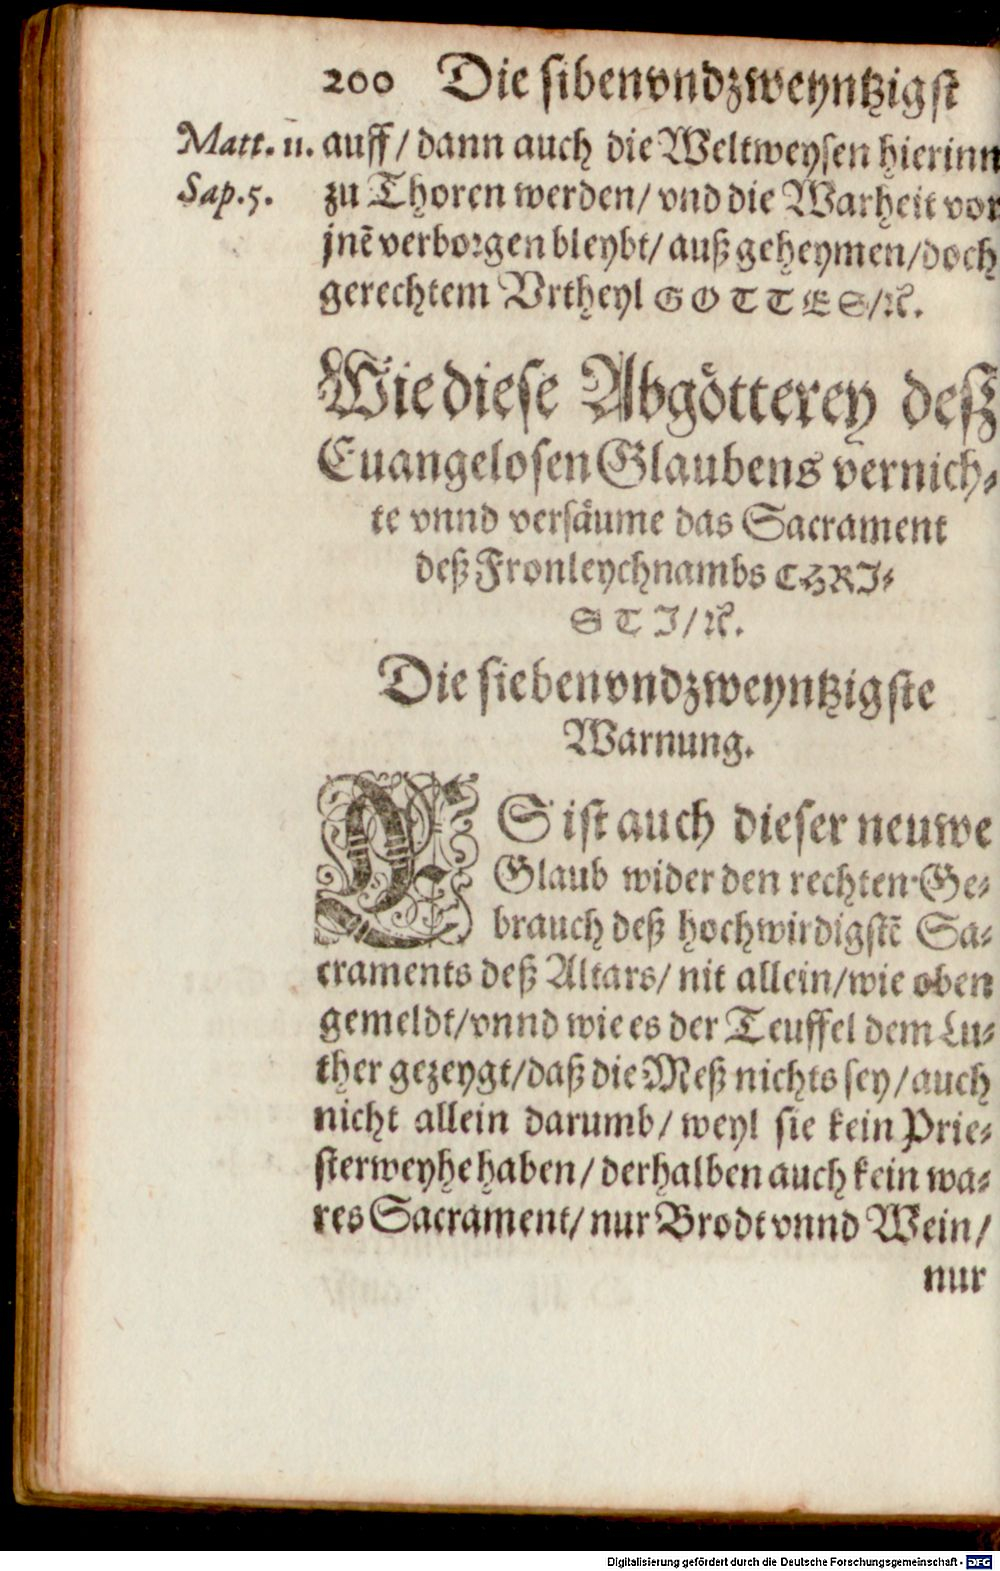 200 Die sibenvndzweyntzigstē
Matt. 11. auff/ dann auch die Weltweysen hierinn
Sap. 5. zu Thoren werden/ vnd die Warheit vor
jnē verborgen bleybt/ auß geheymen/ doch
gerechtem Vrtheyl GOTTES/ ꝛc.
Wie diese Abgötterey deß
Euangelosen Glaubens vernich-
te vnnd versäume das Sacrament
deß Fronleychnambs CHRI-
STI/ ꝛc.
Die siebenvndzweyntzigste
Warnung.
ES ist auch dieser neuwe
Glaub wider den rechten Ge-
brauch deß hochwirdigstē Sa-
craments deß Altars/ nit allein/ wie oben
gemeldt/ vnnd wie es der Teuffel dem Lu-
ther gezeygt/ daß die Meß nichts sey/ auch
nicht allein darumb/ weyl sie kein Prie-
sterweyhe haben/ derhalben auch kein wa-
res Sacrament/ nur Brodt vnnd Wein/
nur
Digitalisierung gefördert durch die Deutsche Forschungsgemeinschaft - DFG